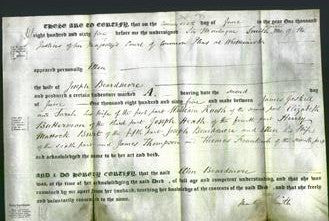 THESE ARE TO CERTIFY, that on the day of June in the year One thousand
Eight hundred and sixty five before me the undersigned Sir Montague Smith one of the
Justices of Her Majesty's Court of Common Pleas at Westminster
appeared personally Ellen
the wife of Joseph Beardmore
and produced a certain Indenture marked A. bearing date the second day
of June One thousand Eight hundred and sixty five and made between James
and Sarah his wife of the first part William of the second part Elizabeth
of the third part Joseph Heath of the fourth part Henry
of the fifth part Joseph Beardmore and Ellen his wife
of the sixth part and James Thompson and Thomas of the seventh part
and acknowledged the same to be her act and deed.
AND I DO HEREBY CERTIFY, that the said Ellen Beardmore
was, at the time of her acknowledging the said Deed, of full age and competent understanding, and that she was
examined by me apart from her husband, touching her knowledge of the contents of the said Deed, and that she freely
and voluntarily consented to the same.